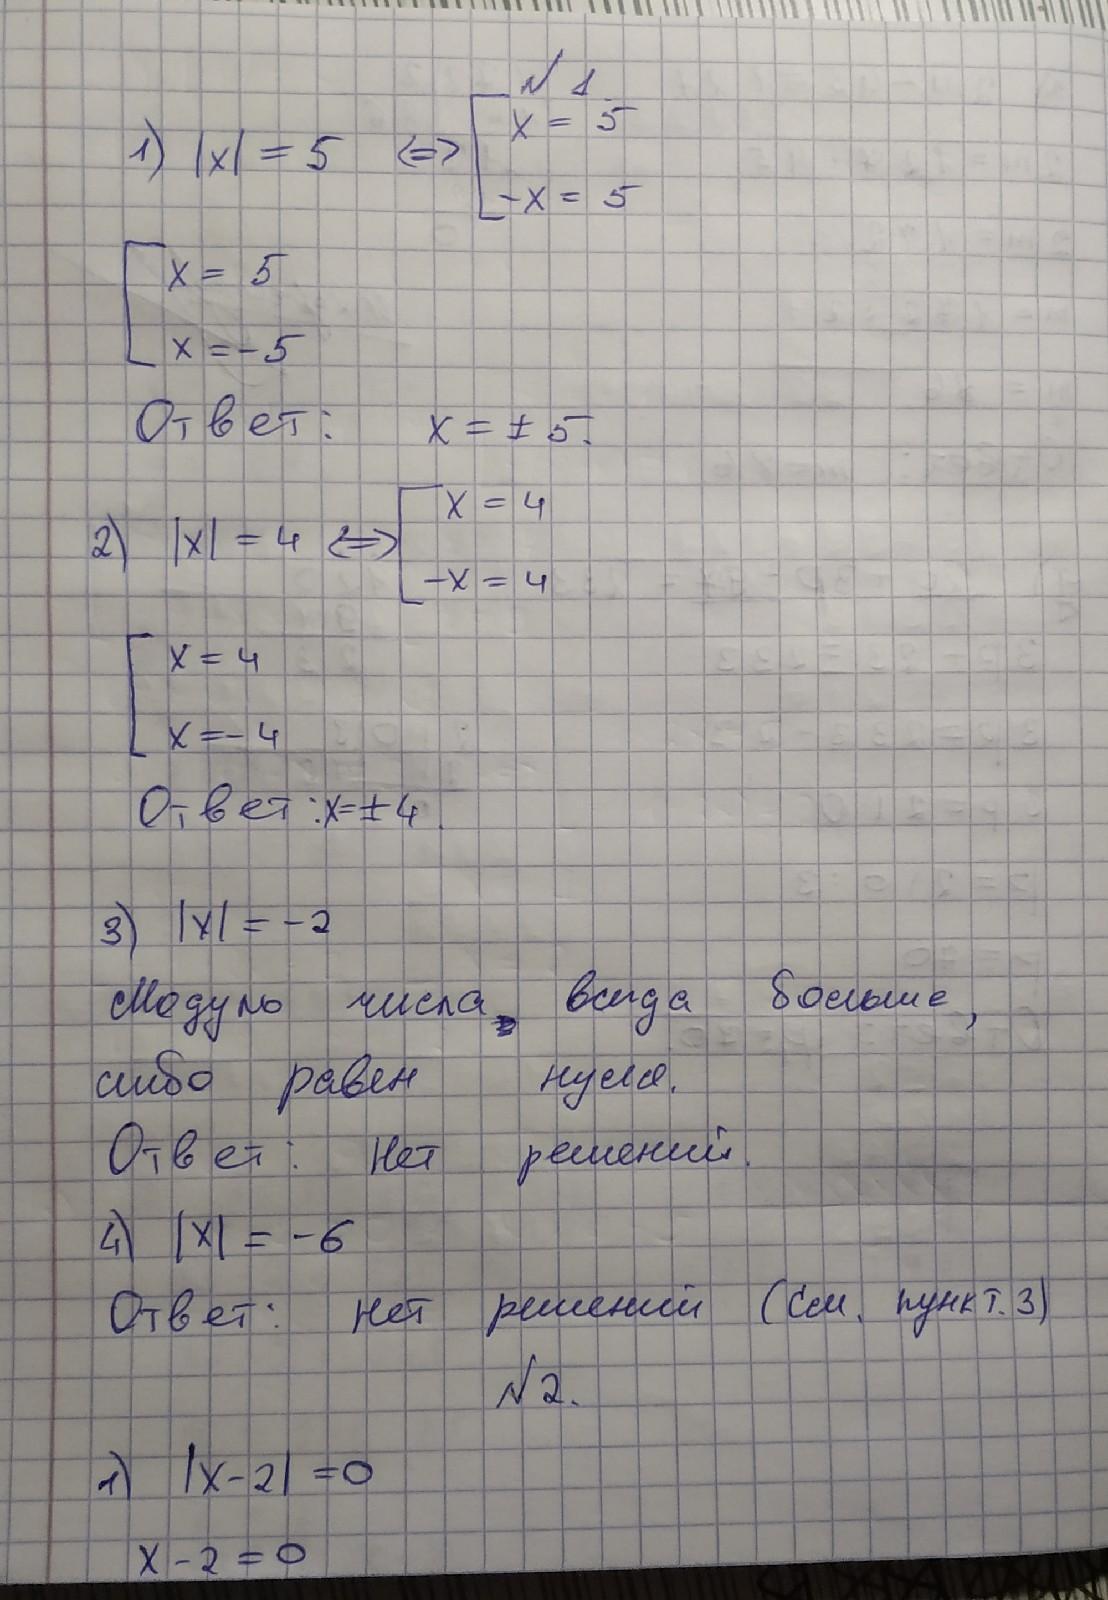 № 1
1) |x| = 5 <=> [ x = 5
-x = 5
[ x = 5
x = -5
Ответ: x = ± 5.
2) |x| = 4 <=> [ x = 4
-x = 4
[ x = 4
x = -4
Ответ: x = ± 4.
3) |x| = -2
Модуль числа всегда больше,
либо равен нуля.
Ответ: Нет решений.
4) |x| = -6
Ответ: нет решений (См. пункт. 3)
№2.
1) |x-2| = 0
x - 2 = 0